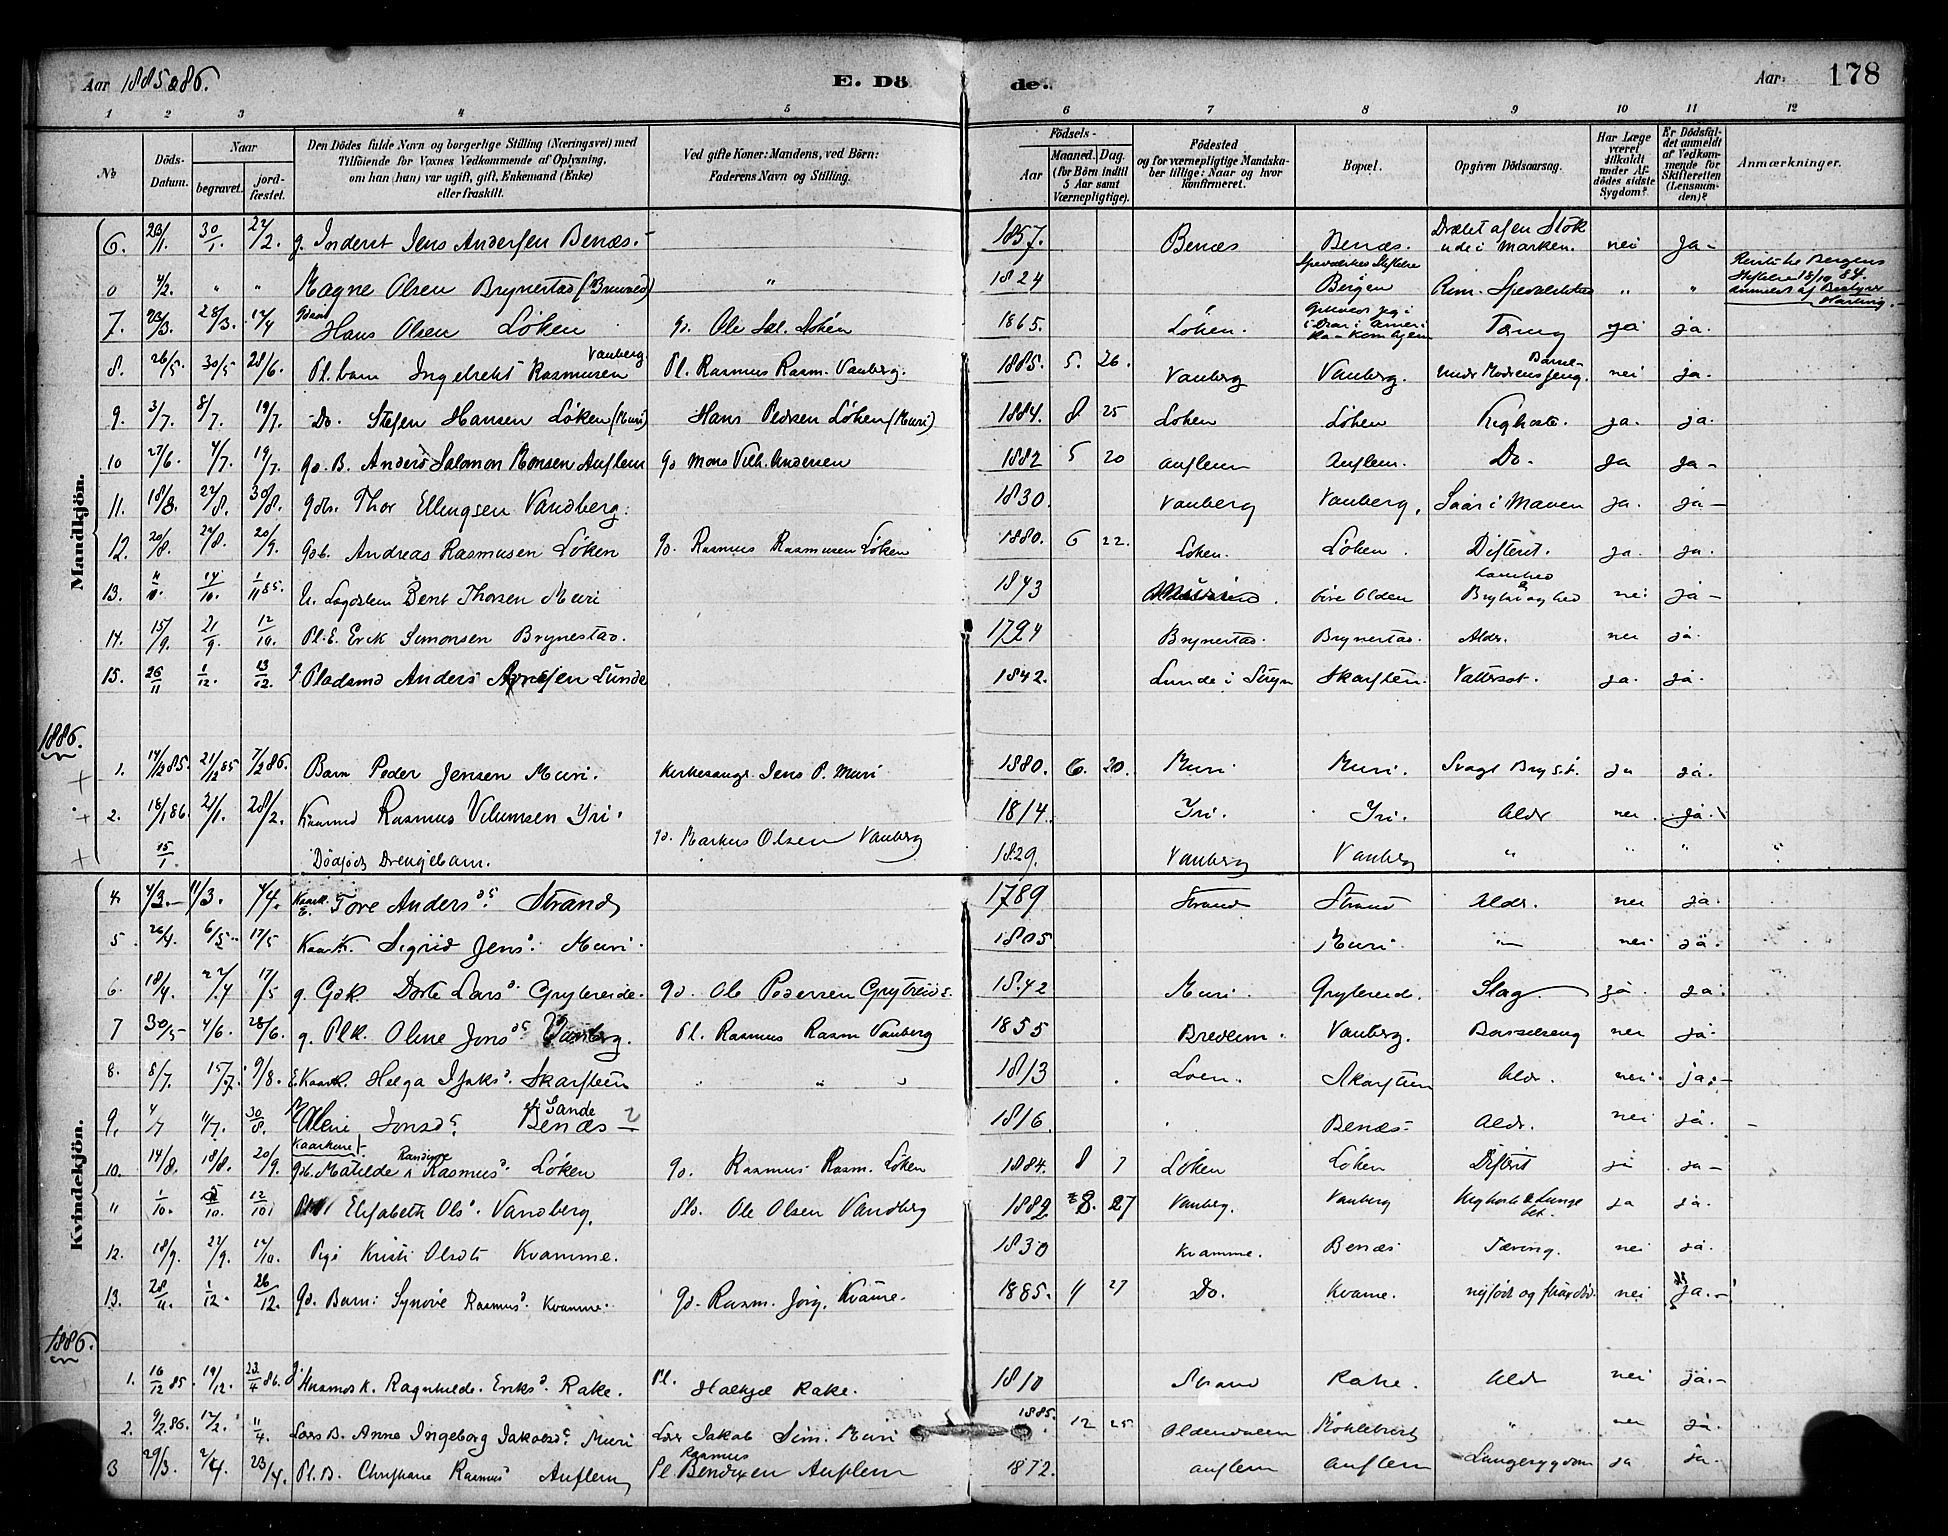 Aar 1885 & 86. E. Dö de. Aar: 178
1 2 3 4 5 6 7 8 9 10 11 12
No Döds-Datum. Naar begravet. jord-fæstet. Den Dödes fulde Navn og borgerlige Stilling (Næringsvei) med Tilföiende for Voxnes Vedkommende af Oplysning, om han (hun) var ugift, gift, Enkemand (Enke) eller fraskilt. Ved gifte Koner: Mandens, ved Börn: Faderens Navn og Stilling. Födsels- Aar Maaned. Dag. (for Börn indtil 5 Aar samt Værnepligtige). Födested og for værnepligtige Mandska-ber tillige: Naar og hvor konfirmeret. Bopæl. Opgiven Dödsaarsag. Har Læge været tilkaldt under Af-dödes sidste Sygdom? Er Dödsfal-det anmeldt af Vedkom-mende for Skifteretten (Lensman-den)? Anmærkninger.
Mandkjön.
6. 23/1. 30/1. 22/2. g. Inderst Jens Andersen Benæs. 1857. Benæs Benæs. Dræbt af en Stok ude i Marken. nei Ja
0 4/2. " " Magne Olsen Brynestad " 1824 Bergen " "
7. 23/3. 28/3. 12/4 Hans Olsen Löken Gd. Ole Löken 1865. Löken. Tæring ja ja.
8. 26/5. 30/5 28/6. Pl. barn Ingebrekt Rasmusen Vanberg Pl. Rasmus Rasm. Vanberg. 1885. 5. 26. Vanberg Vanberg. nei ja.
9. 3/7. 8/7. 19/7. Do. Stefen Hansen Löken (Muri) Hans Pedersen Löken (Muri) 1884. 8 25 Löken Löken Kighoste. ja. ja.
10 27/6. 4/7. 19/7. Gd. B. Anders Salomon Monsen Auflem Gd Mons Vilh. Andersen 1882 5 20 Auflem Auflem. Do. Ja Ja
11. 18/8. 22/8. 30/8. Thor Ellingsen Vandberg. 1830. Vanberg Vanberg. Saar i Maven ja. ja
12. 20/8. 24/8. 20/9. Gdb. Andreas Rasmusen Löken Gd. Rasmus Rasmusen Löken 1880. 6 22. Löken. Löken. Difterit. ja. ja.
13. 4/10. 14/10. 1/11 85. Bent Thorsen Muri 1843 Olden nei ja
14. 15/9. 21/9 12/10. Pl. E. Erik Simonsen Brynestad. 1794 Brynestad. Brynestad. Aldr. nei ja.
15. 26/11 1/12. 13/12. Pladsmd Anders Lunde 1842. Lunde i Stryn Skarsten. Vattersot. ja. ja.
1886.
1. 14/12 85. 21/12 85 7/2 86. Barn Peder Jensen Muri. Kirkesangr. Jens P. Muri 1880. 6. 20. Muri Muri. Svagt Bryst. ja ja.
2. 18/1 86. 24/1. 28/2. Kaarmd Rasmus Vilumsen Yri. 1814. Yri. Yri. Aldr nei ja.
15/1. Dødfödt Drengebarn. Gd. Markus Olsen Vanberg 1829. Vanberg Vanberg " " " "
Kvindekjön.
4. 4/3. 11/3. 4/4. Tore Andersd. Strand 1789 Strand Strand Aldr. nei ja.
5. 26/4. 6/5. 17/5 Kaark. Sigrid Jensd. Muri. 1805 Muri. " nei ja.
6. 18/4. 24/4 17/5 g. Gdk. Dorte Larsd. Grytereide. Gd. Ole Pedersen Grytreide. 1842 Muri. Grytereide. Slag. ja. ja.
7 30/5 4/6. 28/6. g. Plk. Oline Jonsd. Vanberg. Pl. Rasmus Rasm Vanberg 1855 Bredeim. Vanberg. Barselseng nei ja.
8. 8/7. 15/7. 9/8. E. Kaark. Helga Skarsteen " " " 1813 Loen. Skarsteen Aldr. nei. ja.
9. 4/7 11/7. 30/8. Jonsd. Sande Benæs 1816. Benæs Aldr. nei ja.
10. 14/8. 18/8. 20/9. Kaarkone Gdb. Matilde Randine Rasmusd. Löken Gd. Rasmus Rasm. Löken 1884. 8 7 Löken Löken Difterit ja ja
11 1/10. 5/10. 12/10 Elisabeth Olsd. Vandberg. Ole Olsen Vandberg 1882 8. 27 Vanberg. Vanberg Kighoste & Lunge bet. ja ja.
12. 18/9. 22/9. 12/10. Pige Kristi Olsdt Kvamme. 1830 Kvamme. Benæs Tæring. nei ja.
13. 28/11. 1/12. 26/12. Gd. Barn: Synöve Rasmusd. Kvamme. Gd. Rasm. Jörg. Kvame. 1885. 11 27 Do. Kvame. nyfödt og nei ja.
1886.
1. 16/12 85. 19/12. 23/4 86. Husmds K. Ragnhilde Eriksd. Rake. Pl. Rake. 1810 Strand Rake. Aldr nei ja.
2. 9/2 86. 17/2. 11/4. B. Anne Ingeborg Jakobsd. Muri Jakob Sim. Muri 1885. 12 25. Oldendalen " nei ja.
3 29/3. 2/4. 23/4. Pl. B. Rasmusd. Auflem Pl. Rasmus Bendixen Auflem 1872. Auflem Auflem Lungesygdom ja ja.